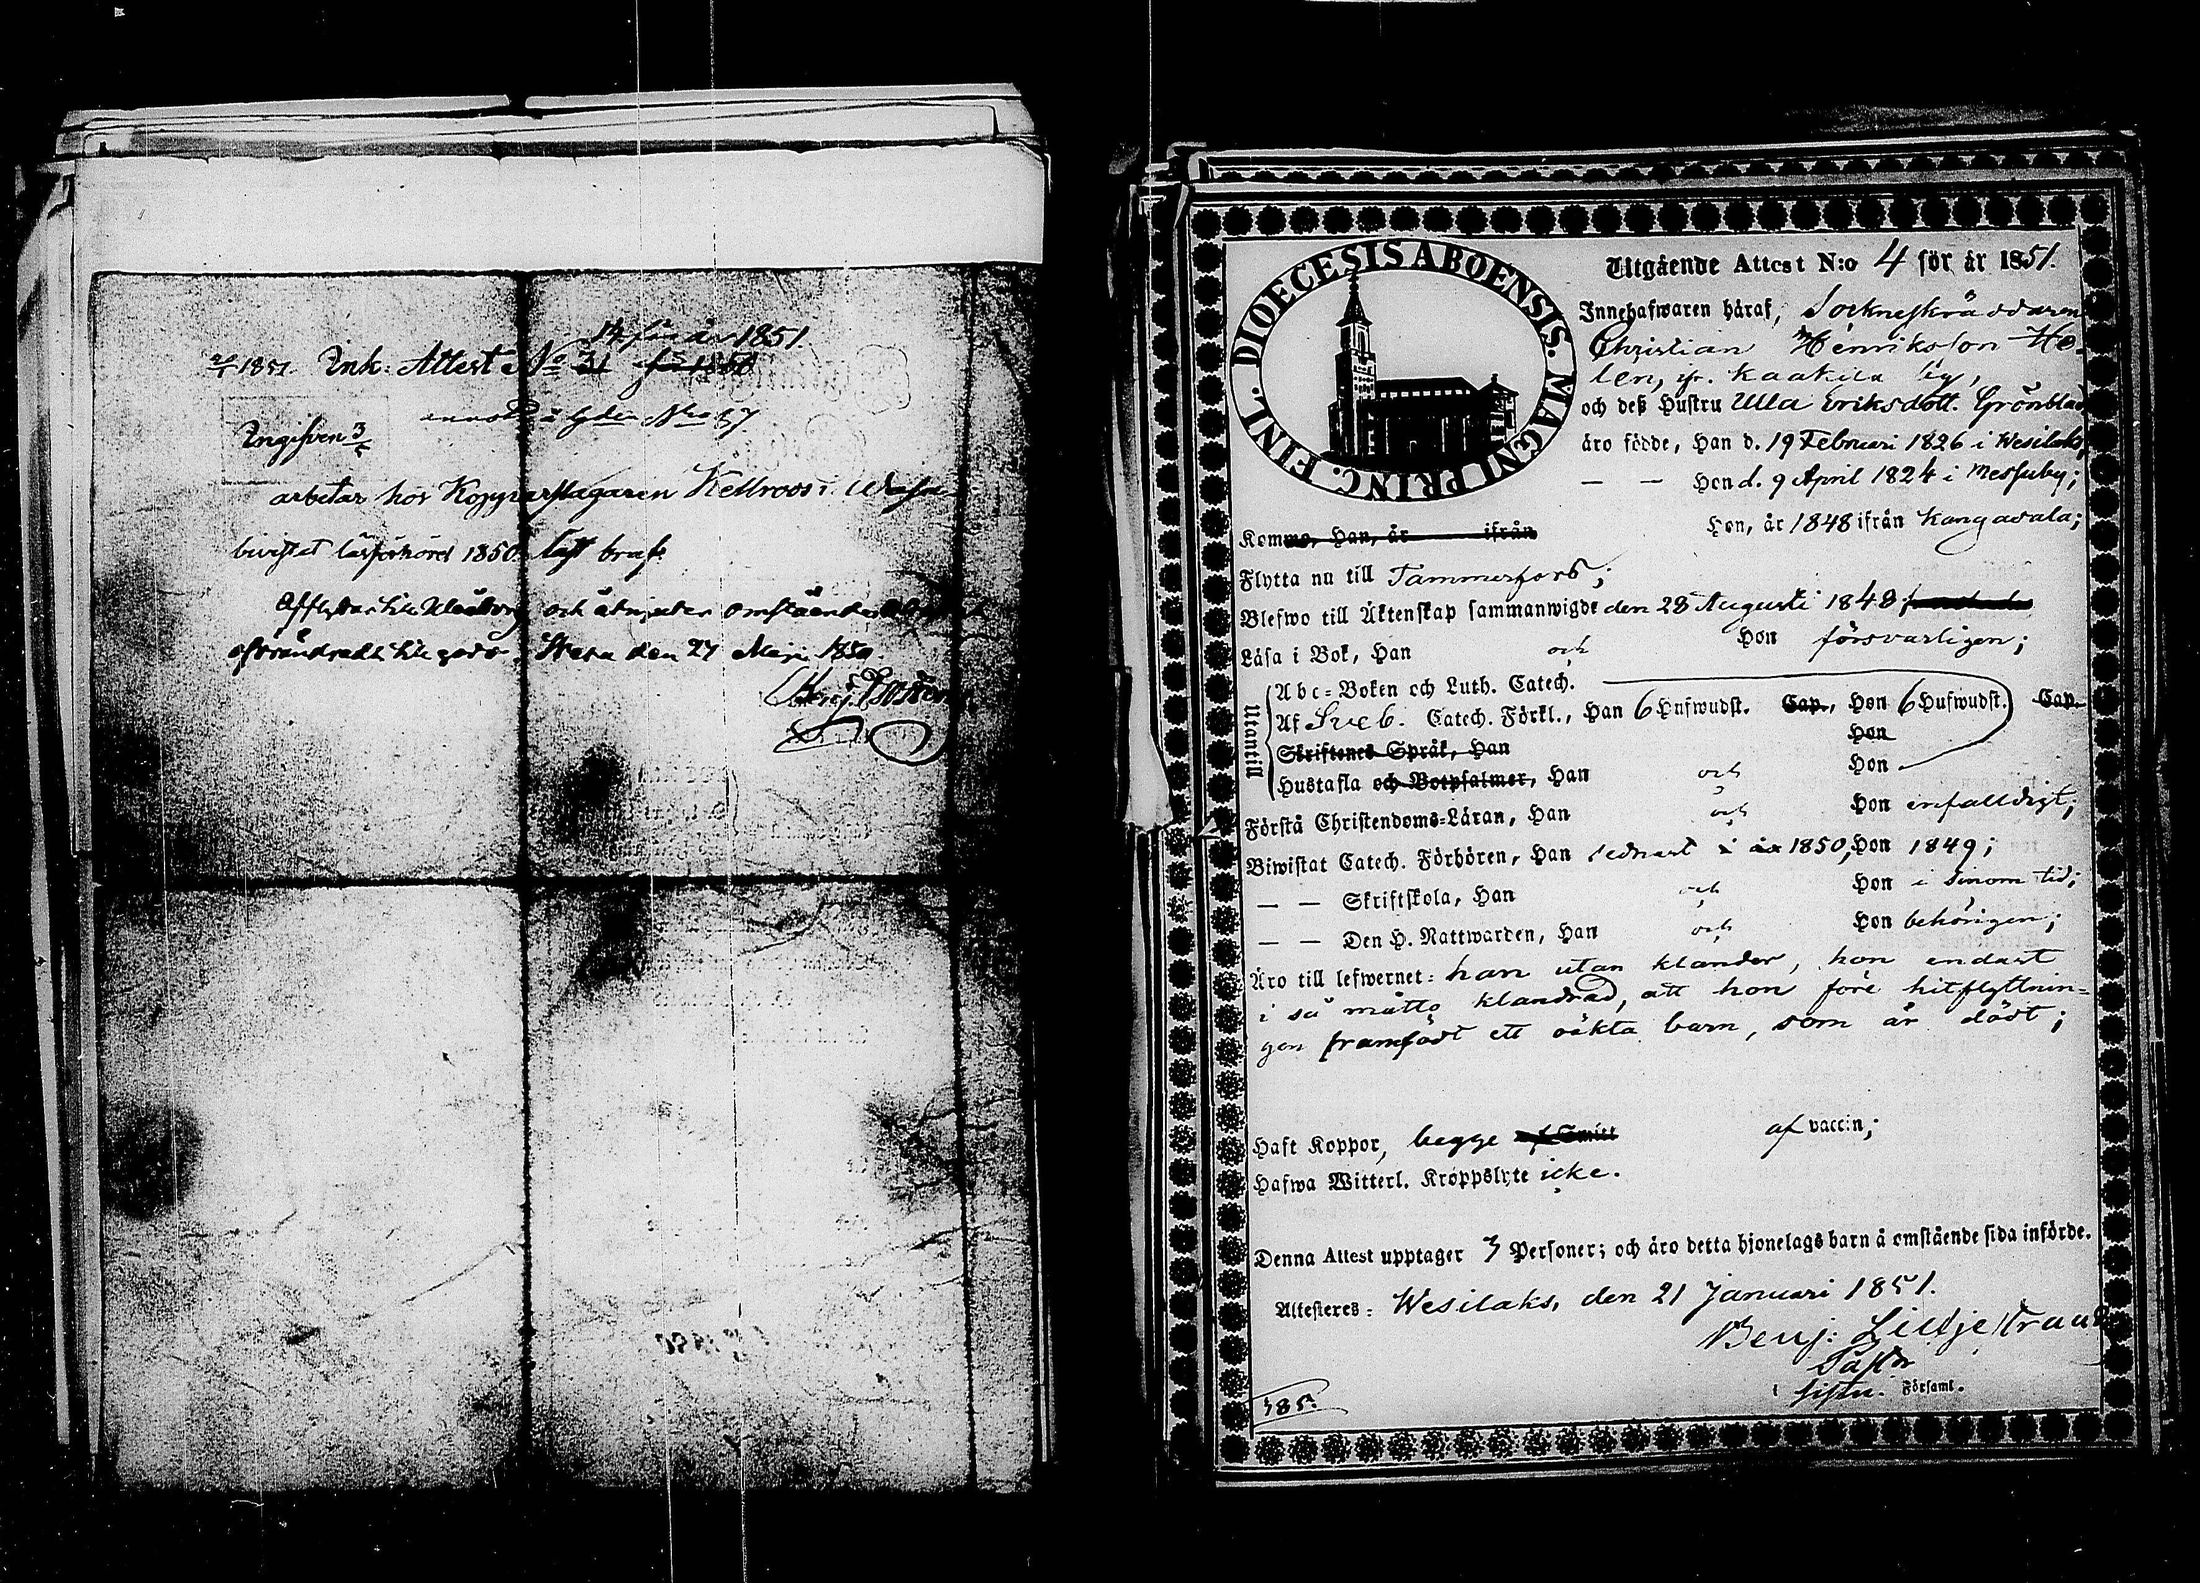 14 för år 1851.
1851. Ink. Attest No 31 f 1850
Ingifven 3/
arbetar hos Kopparslagaren Kellroos i Wasa
bivistat läsförhöret 1850. läst braf.
Afflyttar till Uleåborg och åtnjuter omstående
oförändradt till godo. Wasa den 27 Maji 1850.
DIOECESIS ABOENSIS. MAGNI PRINC. FINL.
Utgående Attest N:o 4 för år 1851.
Innehafwaren häraf, Sockneskräddaren
Christian Henriksson He-
len, fr. Kaakila by,
och deß Hustru Ulla Eriksdott. Grönblad
äro födde, Han d. 19 Februari 1826 i Wesilaks,
— — Hon d. 9 April 1824 i Messuby;
Kommo, Han, år ifrån Hon, år 1848 ifrån Kangasala;
Flytta nu till Tammerfors;
Blefwo till Äktenskap sammanwigde den 28 Augusti 1848;
Läsa i Bok, Han och Hon försvarligen;
Utantill
Abc-Boken och Luth. Catech.
Af Sveb. Catech. Förkl., Han 6 Hufwudst. Cap., Hon 6 Hufwudst. Cap.
Skriftenes Språk, Han Hon
Hustafla och Botpsalmer, Han och Hon
Förstå Christendoms-Läran, Han och Hon enfalldigt;
Biwistat Catech. Förhören, Han sednast i år 1850, Hon 1849;
— — Skriftskola, Han och Hon i sinom tid;
— — Den H. Nattwarden, Han och Hon behörigen;
Äro till lefwernet: han utan klander, hon endast
i så måtto klandrad, att hon före hitflyttnin-
gen framfödt ett oäkta barn, som är dödt;
Haft Koppor, begge af Smitt af vaccin;
Hafwa Witterl. Kroppslyte icke.
Denna Attest upptager 3 Personer; och äro detta hjonelags barn å omstående sida införde.
Attesteres: Wesilaks, den 21 Januari 1851.
Benj: Lilljestrand
Pastor
i Församl.